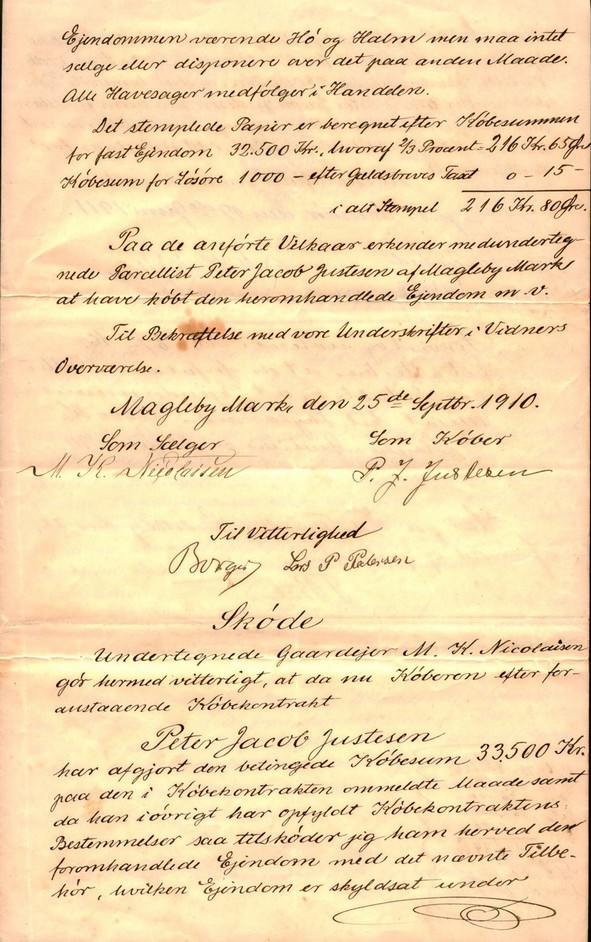 Ejendommen værende Hö og Halm men maa intet
sælge eller disponere over det paa anden Maade.
Alle Havesager medfölger i Handden.
Det stemplede Papir er beregnet efter Köbesummen
for fast Ejendom 32.500 Kr., hvoraf 2/3 Procent = 216 Kr. 65 Öre
Köbesum for Lösöre 1000 - efter Gældsbrevs Taxt 0 - 15 -
i alt Stempel 216 Kr. 80 Öre.
Paa de anförte Vilkaar erkender medunderteg-
nede Parcellist Peter Jacob Justesen af Magleby Mark
at have köbt den heromhandlede Ejendom m v.
Til Bekræftelse med vore Underskrifter i Vidners
Overværelse.
Magleby Mark, den 25de Septbr. 1910.
Som Sælger Som Köber
M. K. Nicolaisen P. J. Justesen
Til Vitterlighed
Lars P Pedersen
Sköde
Undertegnede Gaardejer M. K. Nicolaisen
gör hermed vitterligt, at da nu Köberen efter for-
anstaaende Köbekontrakt
Peter Jacob Justesen
har afgjort den betingede Köbesum 33,500 Kr.
paa den i Köbekontrakten ommeldte Maade samt
da han iövrigt har opfyldt Köbekontraktens
Bestemmelser saa tilsköder jeg ham herved den
foromhandlede Ejendom med det nævnte Tilbe-
hör, hvilken Ejendom er skyldsat under